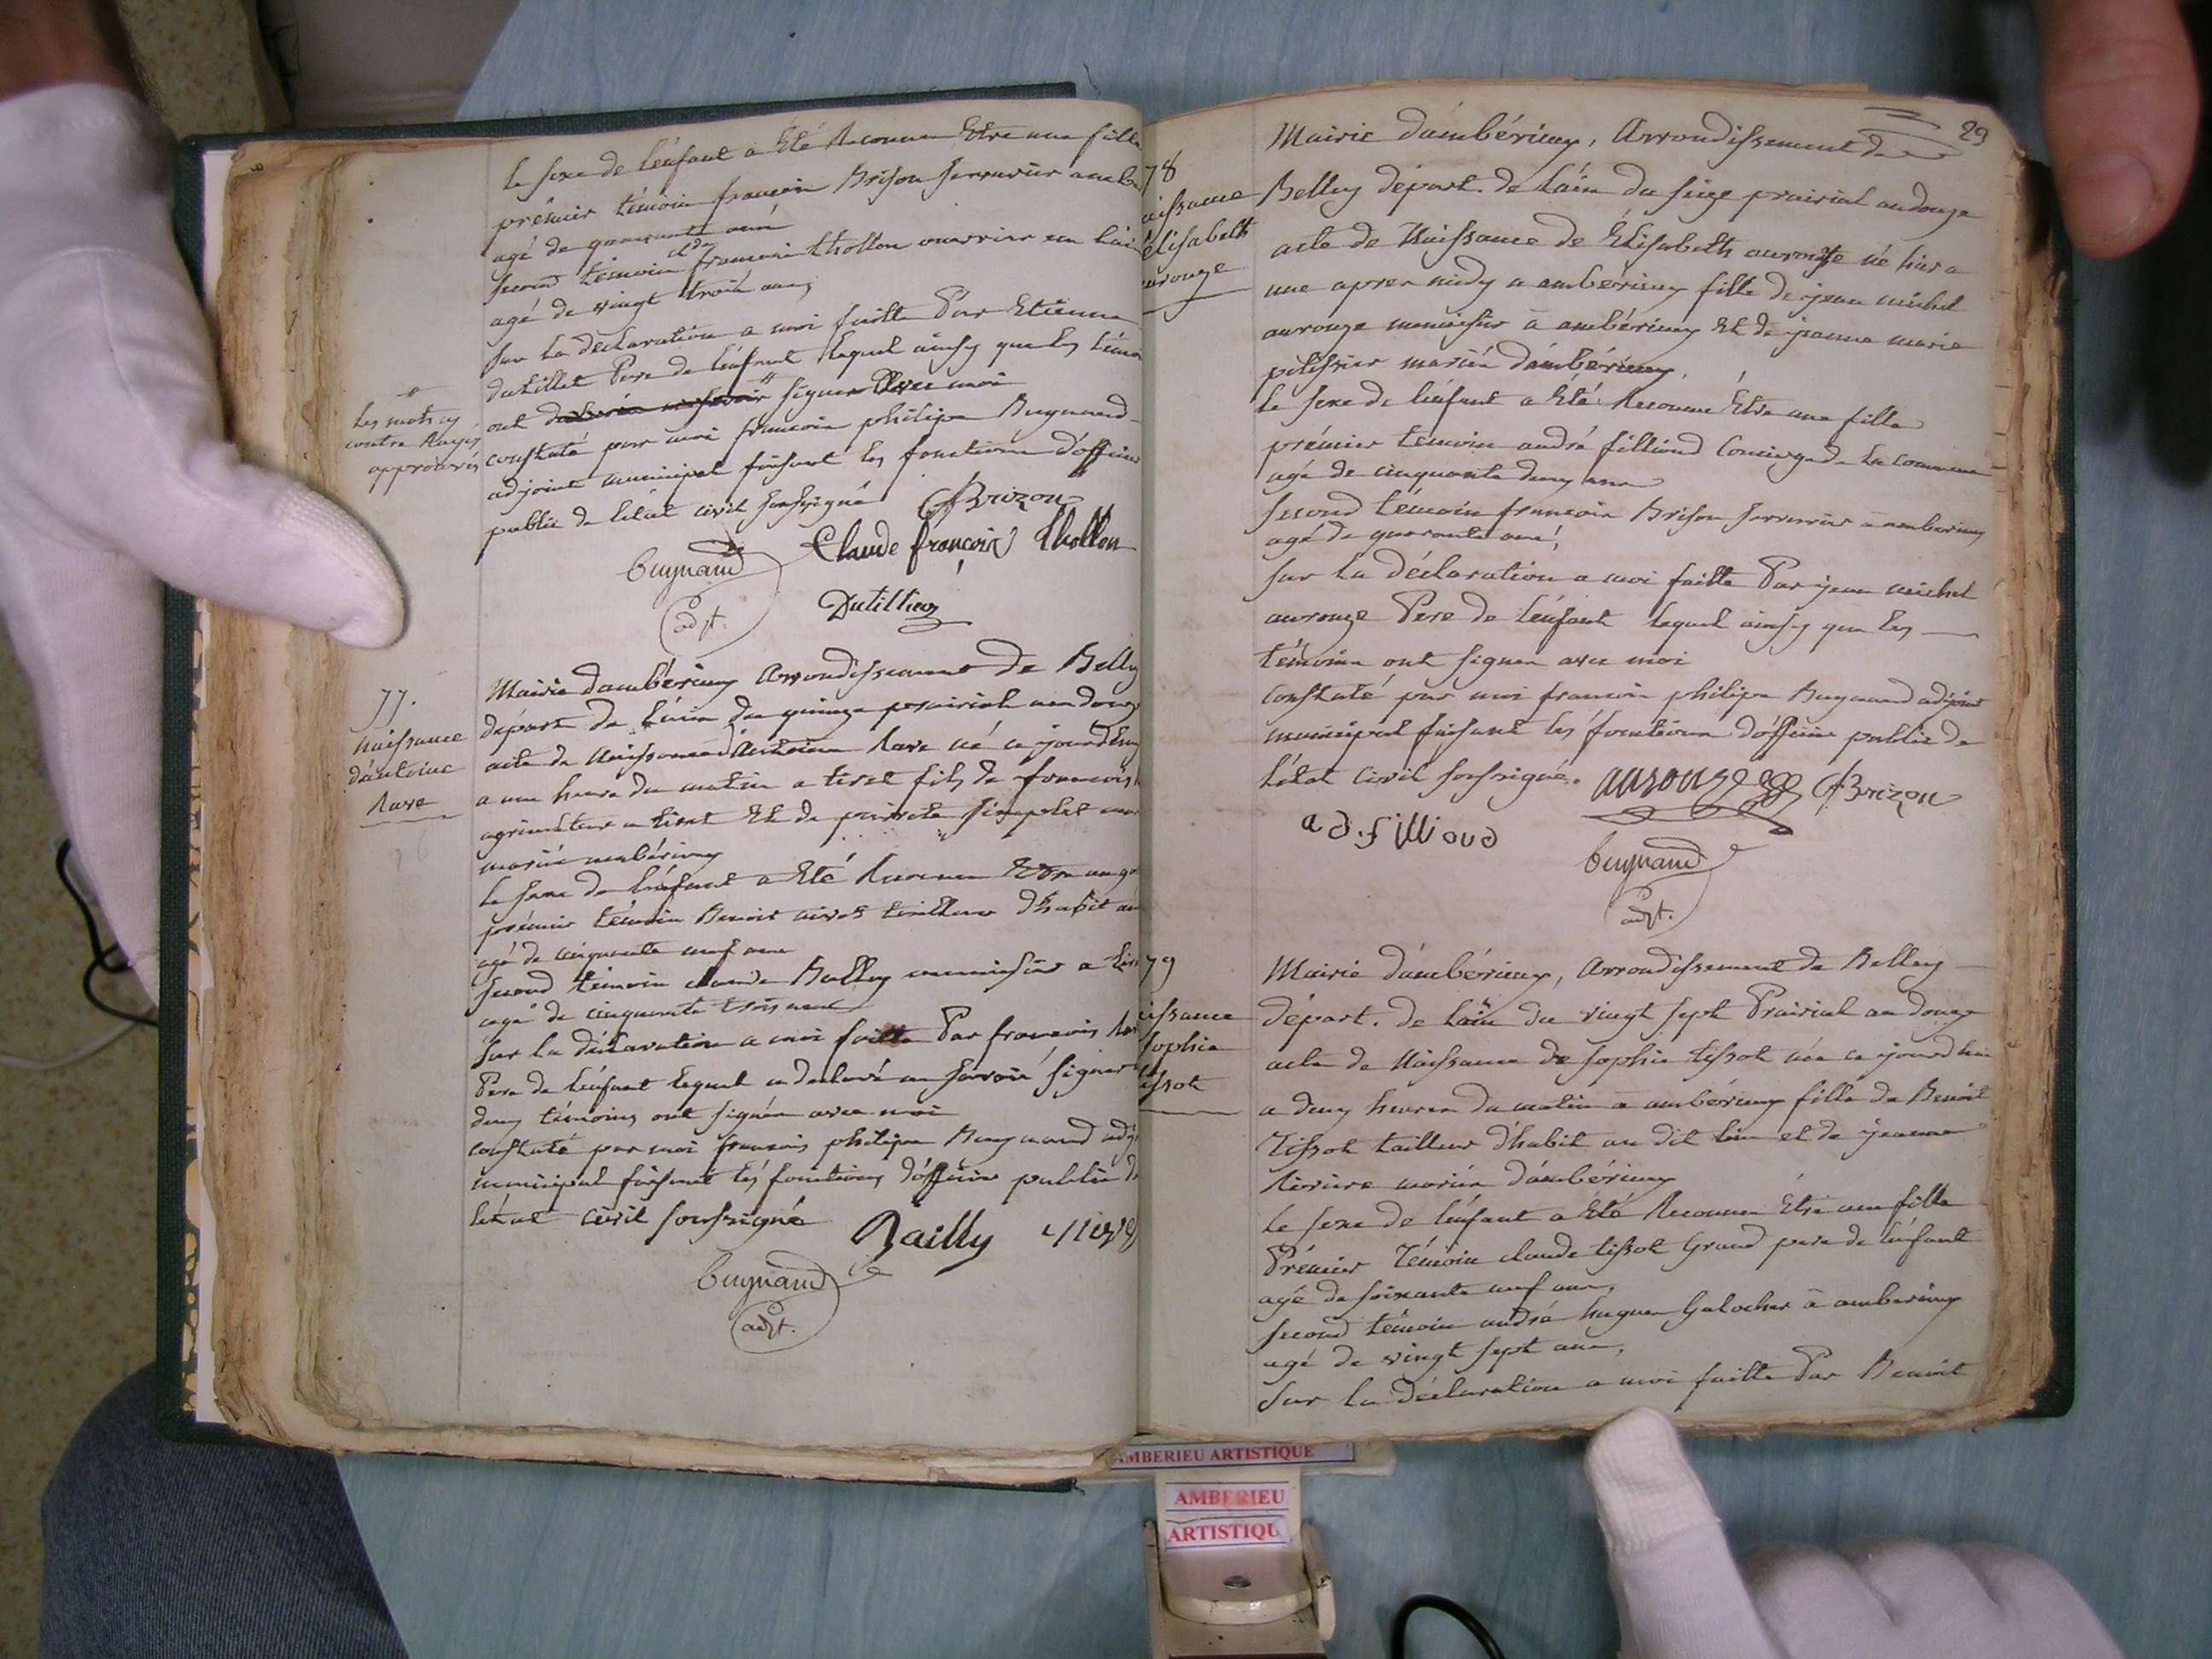 le sexe de l'énfant a Eté Reconnu Etre une fille
prémier témoin françois Brison serrurier a
agé de quarante ans
second témoin cl de françois thollon ouvrier en
agé de vingt trois ans
sur la declaration a moi faitte Par Etienne
dutillet Pere de l'énfant lequel ainsy que les témoi
ont signer avec moi
les mots cy
contre Rayés
approuvés
constaté par moi francois philipe Buynand
adjoint municipal faisant les fonctions d'officier
public de l'état civil soussigné
Brizon
Claude françois thollon
buynand
adjt.
Dutillieu
77.
Naissance
d'antoine
Rave
Mairie d'ambérieux Arrondissement de Belley
départ. de l'ain du quinze prairial an douze
acte de Naissance d'Antoine Rave né ce jourdhuy
a une heure du matin a tiret fils de francois
agriculteur a tiret Et de
mariés ambérieux
le sexe de l'énfant a Eté Reconnu Etre un ga
prémier témoin Benoit nivet tailleur d'habit
agé de cinquante neuf ans
second témoin claude Bailly menuisier a tir
agé de cinquante trois ans
Sur la déclaration a moi faitte Par francois Rav
Pere de l'énfant lequel a declaré ne savoir signer
deux témoins ont signés avec moi
constaté par moi francois philipe Buynand adj
municipal faisant les fonctions d'officier public de
l'état civil soussigné
Bailly
buynand
adjt.
29
78
aissance
élisabeth
aurouze
Mairie d'ambérieux, Arrondissement de
Belley départ. de l'ain du seize prairial an douze
acte de Naissance de Élisabeth aurouze né hier a
une apres midy a ambérieux fille de jean michel
aurouze menuisier à ambérieux Et de jeanne marie
pelissier mariés d'ambérieux,
le sexe de l'énfant a Été Reconnu Être une fille
prémier temoin andré fillioud Concierge de la commune
agé de cinquante deux ans
second témoin francois Brison serrurier à amberieux
agé de quarante ans,
sur la déclaration a moi faitte Par jean michel
aurouze Pere de l'énfant lequel ainsy que les
témoins ont signer avec moi
constaté par moi francois philipe Buynand adjoint
municipal faisant les fonctions d'officier public de
l'état civil soussigné.
aurouze
Brizon
ad. fillioud
buynand
adjt.
79
issance
sophie
issot
Mairie d'ambérieux, Arrondissement de Belley
départ. de l'ain du vingt sept Prairial an douze
acte de Naissance de sophie tissot née ce jourd'hui
a deux heures du matin a ambérieux fille de Benoit
Tissot tailleur d'habit au dit lieu et de jeanne
Riviere mariés d'ambérieux
le sexe de l'énfant a Été Reconnu Être une fille
Prémier Témoin claude tissot Grand pere de l'énfant
agé de soixante neuf ans,
second témoin andré hugues Galocher à amberieux
agé de vingt sept ans,
Sur la déclaration a moi faitte Par Benoit
AMBERIEU ARTISTIQUE
AMBERIEU
ARTISTIQU